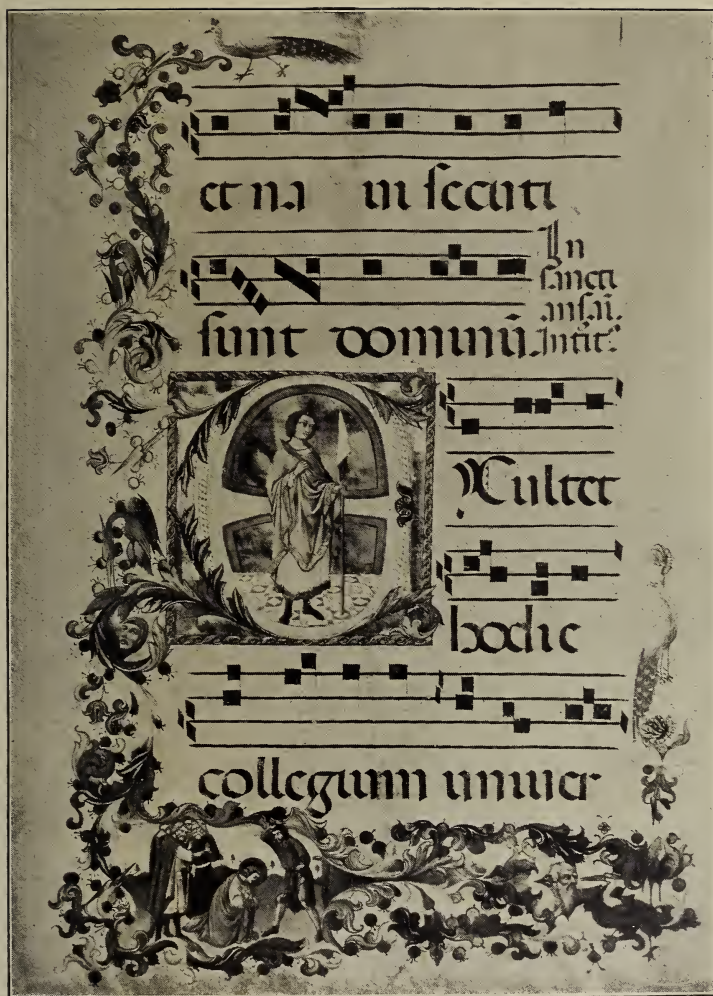 et na in secuti
sunt dominū.
In
sancti
ansāi.
Introit.
EXultet
hodie
collegium univer